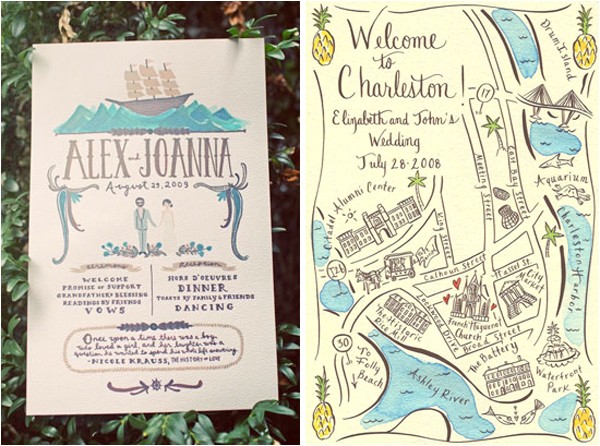 ALEX and JOANNA
August 29, 2009
ceremony
WELCOME
PROMISE OF SUPPORT
GRANDFATHERS BLESSING
READINGS BY FRIENDS
VOWS
reception
HORS D'OEUVRES
DINNER
TOASTS BY FAMILY & FRIENDS
DANCING
Once upon a time there was a boy
who loved a girl, and her laughter was a
question he wanted to spend his whole life answering
-NICOLE KRAUSS, THE HISTORY OF LOVE
Welcome
to
Charleston!
Elizabeth and John's
Wedding
July 28-2008
17
Drum Island
Aquarium
East Bay Street
Meeting Street
King Street
Citadel Alumni Center
Charleston Harbor
Calhoun Street
Hassel St.
City
Market
Lockwood Drive
French Huguenot
Church
Broad Street
The Historic
Rice Mill
The Battery
Waterfront
Park
30
To
Folly
Beach
Ashley River